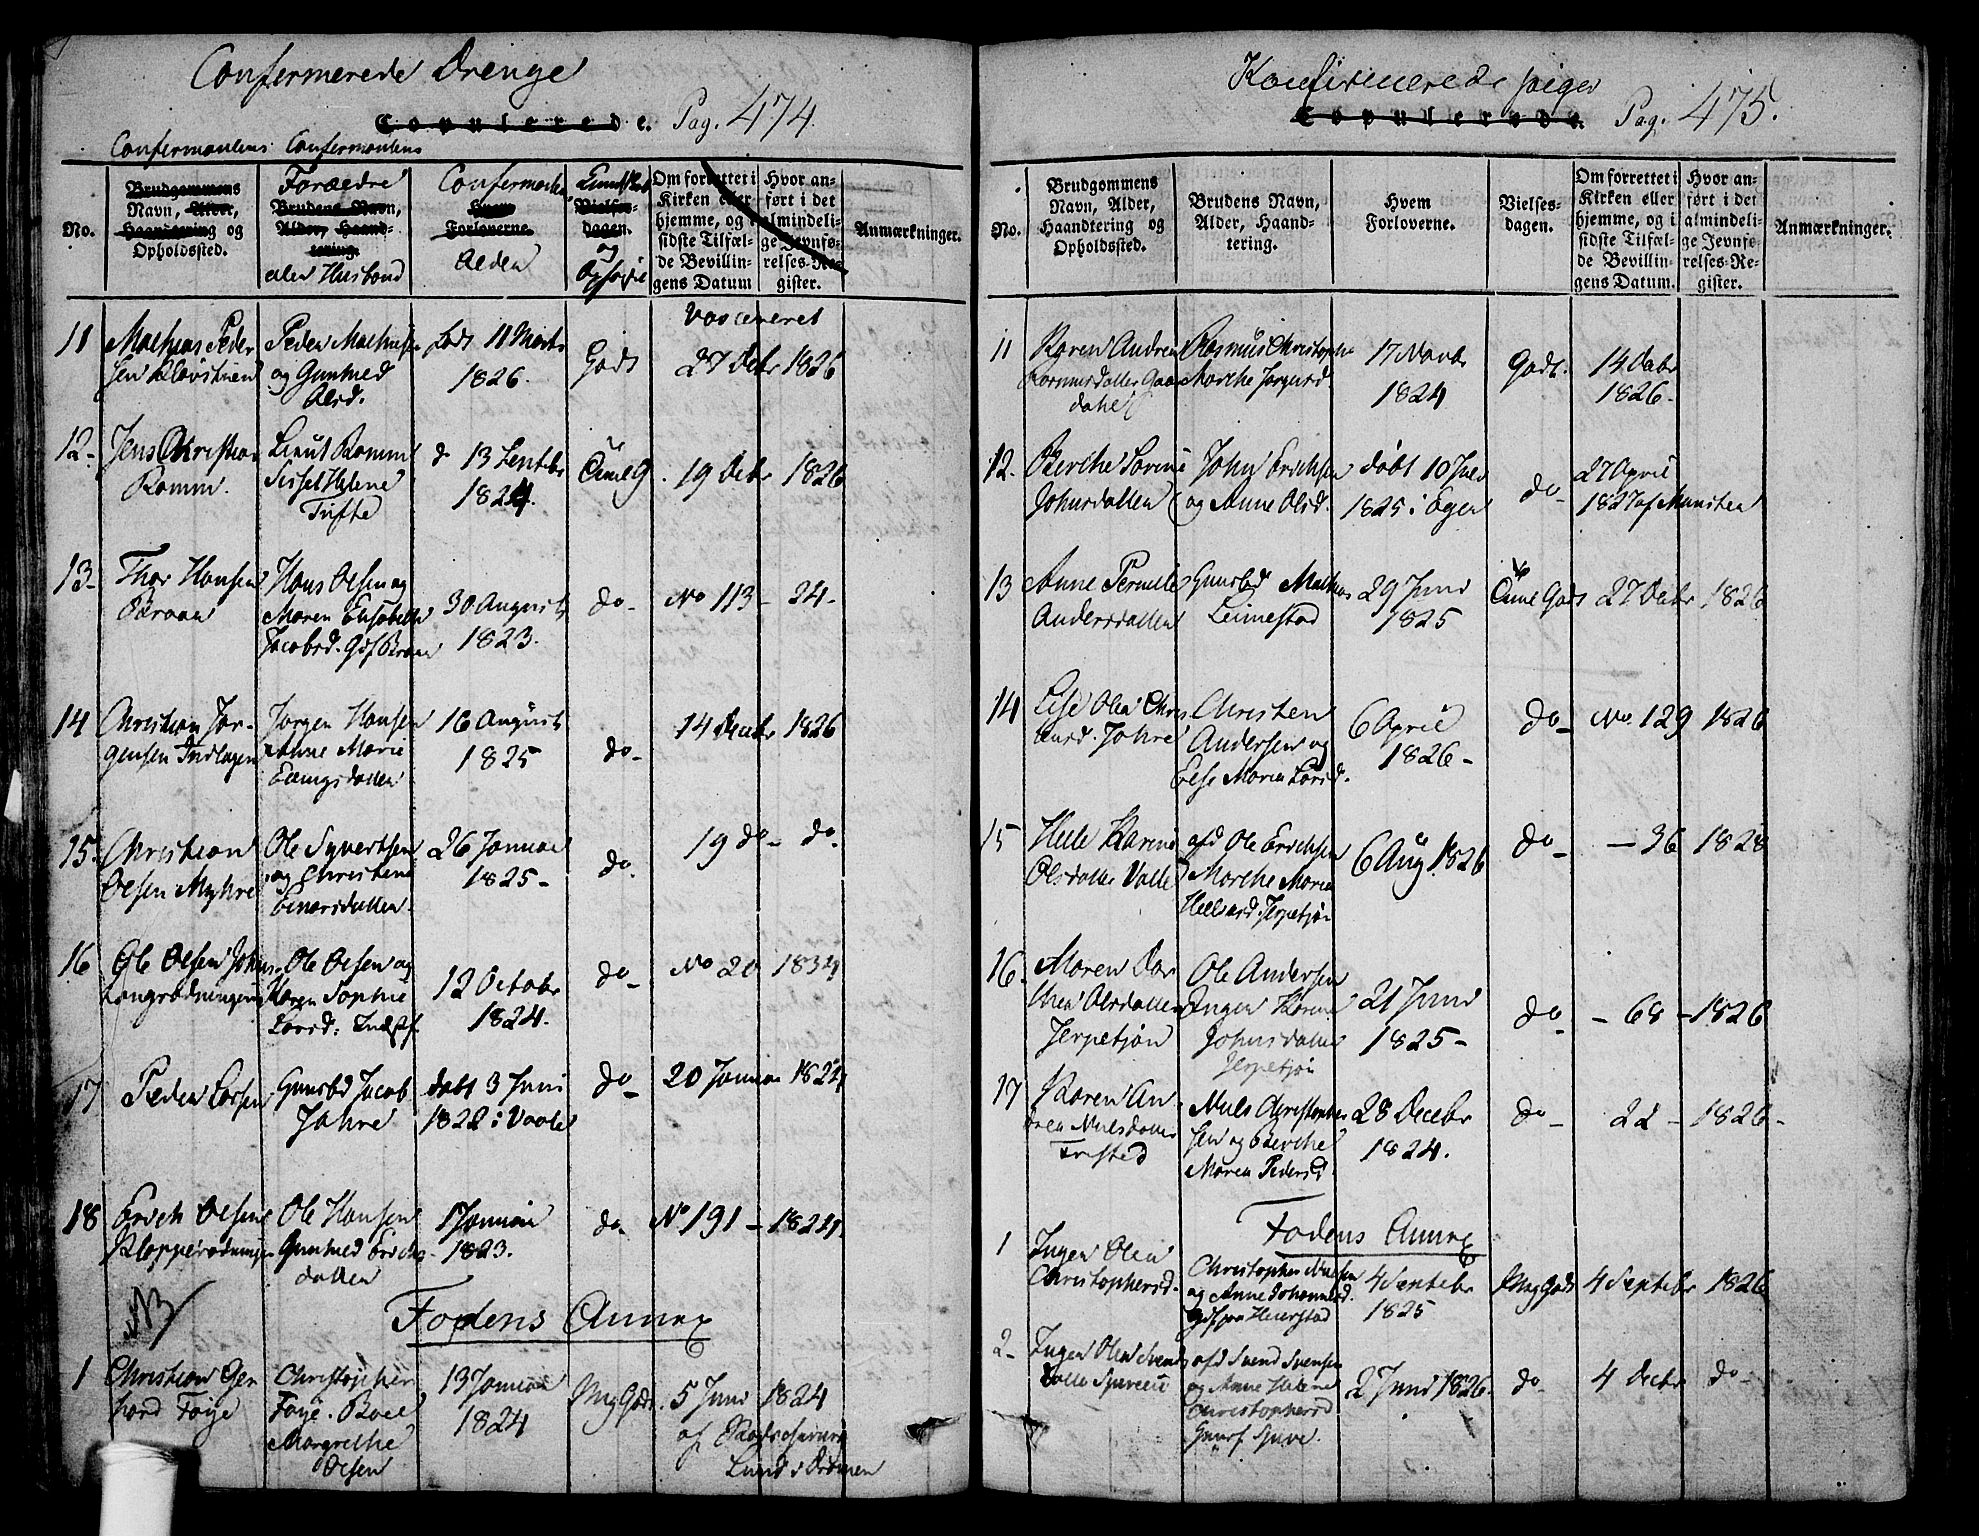 Confermerede Drenge
Copulerede. Pag. 474.
Confermantens Confermantens
No.
Brudgommens
Navn, Alder,
Haandtering og
Opholdssted.
Forældre
Brudens Navn,
Alder, Haand-
tering.
eller Husbond
Hvem
Forloverne.
Alder
Kundskab
Vielses-
dagen.
og
Opførsel
Om forrettet i
Kirken eller
hjemme, og i
sidste Tilfæl-
de Bevillin-
gens Datum
Hvor an-
ført i det
almindeli-
ge Jevnfø-
relses-Re-
gister.
Anmærkninger.
Vaccineret
11 Mathias Peder
sen
Peder Mathisen
og Gunhild
Olsd.
født 11 Marts
1826.
Godt
27 Debr 1826
12. Jens Christian
Romm.
Lieut Romm
Sissel Helene
Tufte
d 13 Septbr
1824.
19 Debr 1826
13. Thor Hansen
Braaen
Hans Olsen og
Maren Elisabeth
Jacobsd.
30 August
1823.
do
No 113 - 24-
14 Christian Jør-
gensen
Jørgen Hansen
Anne Marie
16 August
1825
do
14 Decbr 1826
15. Christian
Olsen Myhre
Ole Syvertsen
og Christine
Einarsdatter
26 Januar
1825 -
do.
19 do - do.
16 Ole Olsen
Ole Olsen og
Karen Sophie
Larsd.
12 Octobr
1824.
do
No 20 1834
17 Peder Larsen
Jacob
Jahre
født 3 Juni
1822 i Vaale
do
20 Januar 1824
18 Erich Olsen
Ole Hansen
Gunhild Erichs
datter
1 Januar
1823.
do
No 191 - 1824
NB
Fodens Annex
1 Christian Ger
hard Føye
Christopher
Føye. Boel
Margrethe
Olsen
13 Januar
1824
Mg Godt.
5 Juni 1824
af
Lund i Dramen
Konfirmerede piger
Copulerede. Pag. 475.
No.
Brudgommens
Navn, Alder,
Haandtering og
Opholdssted.
Brudens Navn,
Alder, Haand-
tering.
Hvem
Forloverne.
Vielses-
dagen.
Om forrettet i
Kirken eller
hjemme, og i
sidste Tilfæl-
de Bevillin-
gens Datum.
Hvor an-
ført i det
almindeli-
ge Jevnfø-
relses-Re-
gister.
Anmærkninger.
11 Karen Andrea
Rasmus Christophe
Marthe Jørgensd.
17 Novbr
1824
Godt.
14 Debr
1826.
12. Berthe Sorine
Johnsdatter
John Erichsen
og Anne Olsd.
døbt 10 Juli
1825 i Eger
do
27 April
1827 af
13 Anne Pernille
Andersdatter
Mathias
Leimestad
29 Juni
1825
Godt
27 Debr 1826
14 Else Olea Chris
Jahre
Christen
Andersen og
Else Maria Larsd.
6 April
1826 -
do
No. 129 1826
15 Helle Karine
Olsdatter Valle
Ole Erichsen
Marthe Maria
Jerpetjøn
6 Aug. 1826
do
- 36 1828
16. Maren Dor
thea Olsdatter
Jerpetjøn
Ole Andersen
Inger Karine
Johnsdatter
Jerpetjøn
21 Juni
1825 -
do
- 68 - 1826
17 Karen An
drea Nielsdatter
Nils Christopher
sen og Berthe
Maria Pedersd.
28 Decebr
1824.
do -
22 - 1826 -
Fodens Annex
1 Inger Olea
Christophersd.
Christopher Nielsen
og Anne Johannesd.
4 Septebr
1825
Mg Godt
4 Septebr 1826
2 Inger Olea Svends
Svend Svensen
og Anne Helene
Christophersd
2 Juni 1826.
do
4 Decbr do -